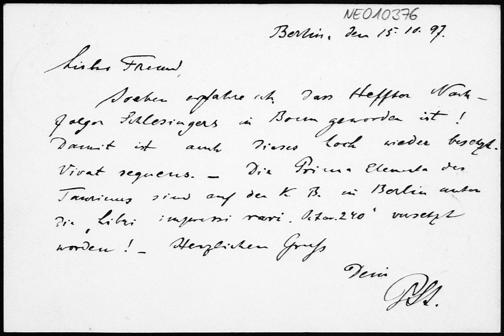 NEO10376
Berlin, den 15.10.97.
Liebster Freund,
Soeben erfahre ich, dass Heffter Nach-
folger Schlesingers in Bonn geworden ist!
Damit ist auch dieses Loch wieder besetzt.
Vivat sequens. — Die Prima Elementa des
Taurinus sind auf der K. B. in Berlin unter
die „Libri impressi rari. Octav. 240" versetzt
worden! — Herzlichen Gruss
Dein
PSt.